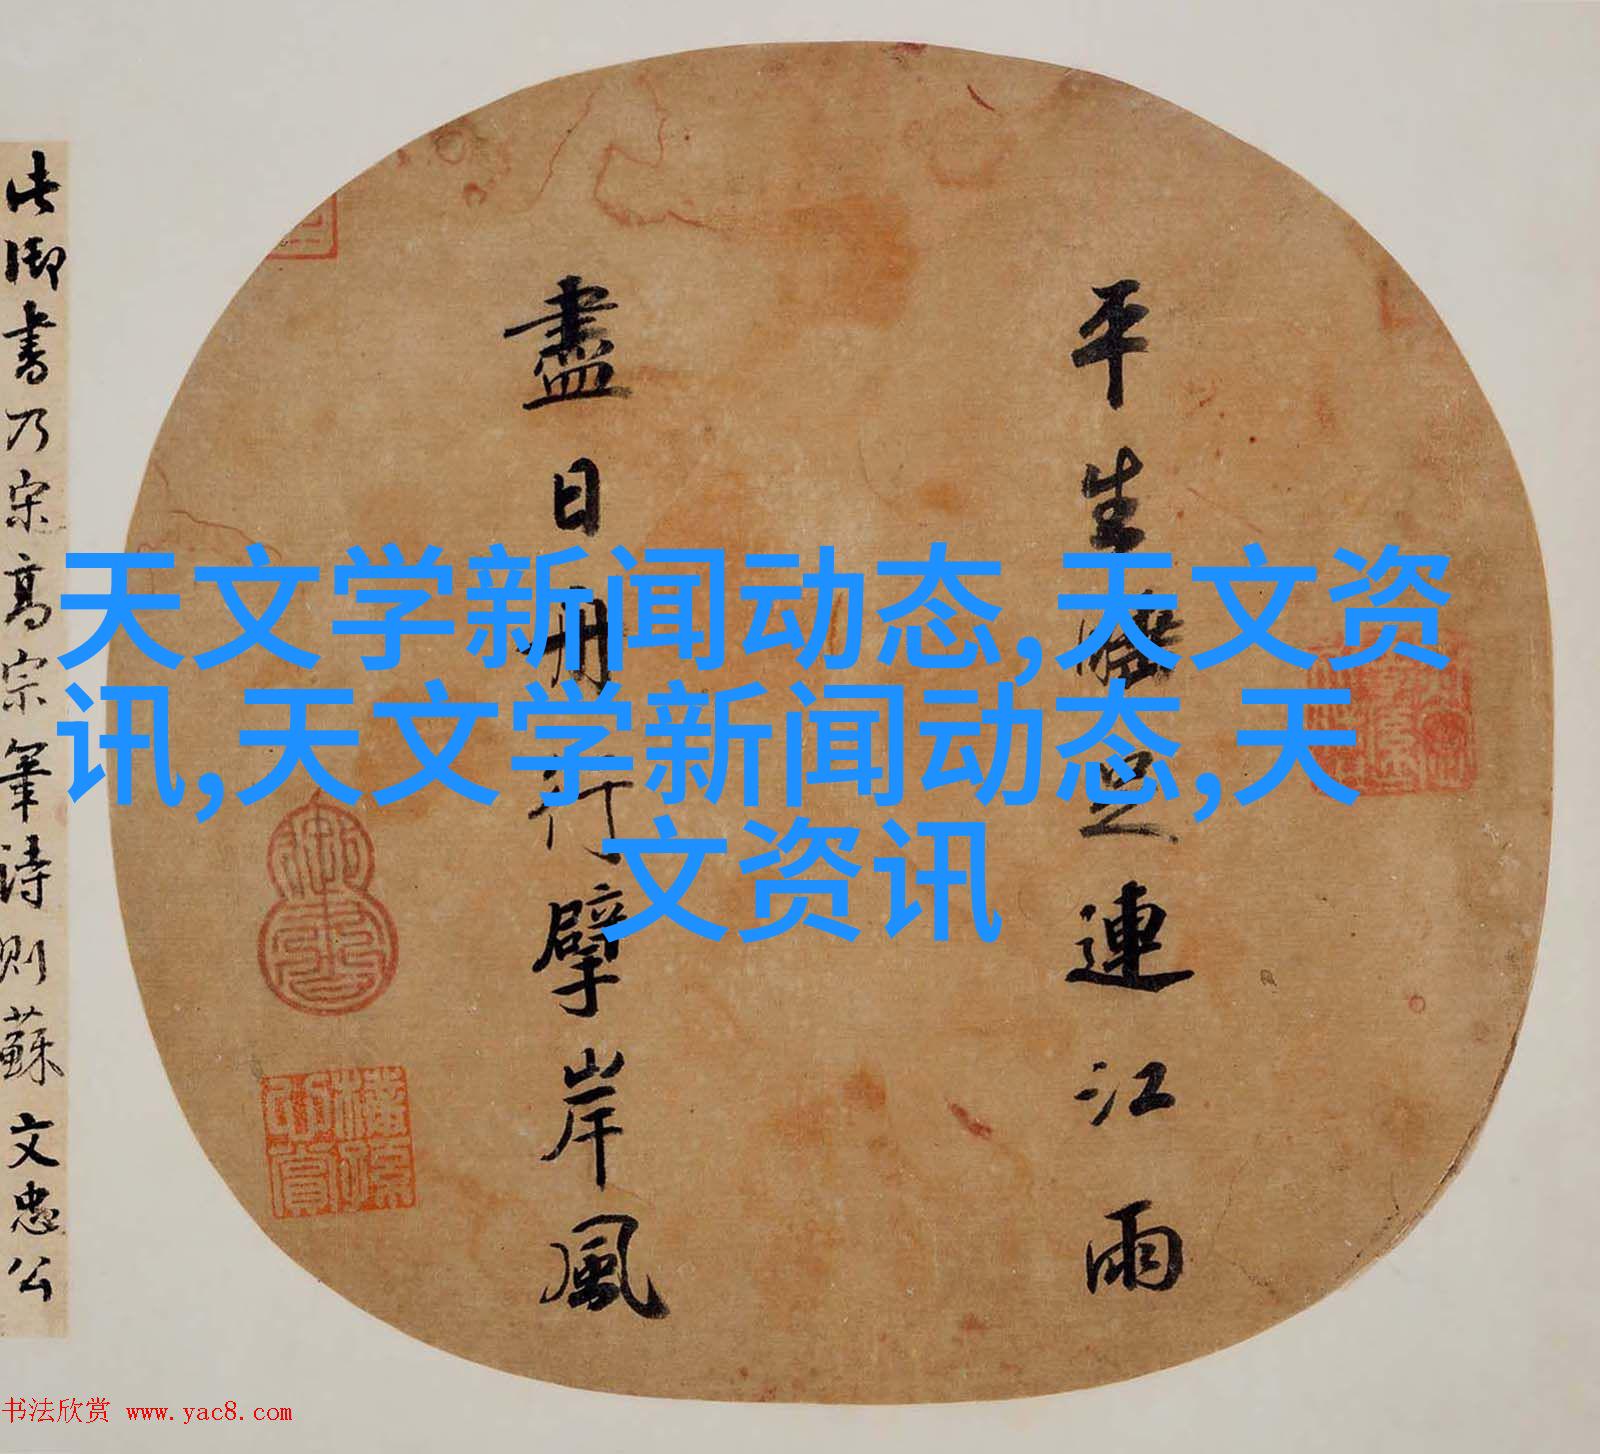 平生睡足連江雨
盡日舟行擘岸風
此御書乃宋高宗筆詩則蘇文忠公
天文学新闻动态,天文资
讯,天文学新闻动态,天
文资讯
书法欣赏 www.yac8.com